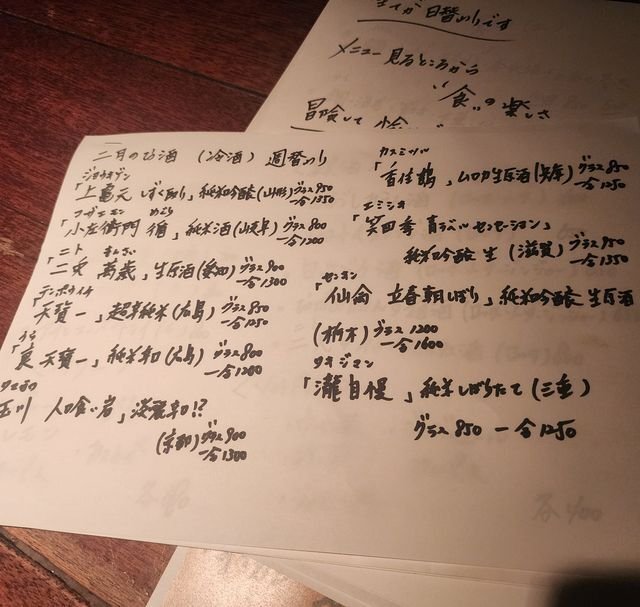 までが日替りです
メニュー見るところから
"食"の楽しさ
冒険して
二月のお酒 (冷酒) 週替り
ジョウキゲン
「上亀元 しずく取り」純米吟醸(山形)グラス950
一合1350
コザエモン
「小左衛門 」純米酒(岐阜)グラス800
一合1200
ニト まんざい
二兎 萬歳」生原酒(愛知)グラス900
一合1300
テンポウイチ
天寶一」超辛純米(広島)グラス850
一合1250
うら
「裏 天寶一」純米和(広島)グラス800
一合1200
タマガワ
玉川 人喰い岩」淡麗辛口!?
(京都)グラス900
一合1300
カスミヅル
「香住鶴」ムロカ生原酒(兵庫)グラス850
一合1250
エミシキ
「笑四季 青ラベル センセーション」
純米吟醸 生 (滋賀)グラス950
一合1350
センキン
「仙禽 立春朝しぼり」純米吟醸 生原酒
(栃木)グラス1200
一合1600
タキジマン
「瀧自慢」純米しぼりたて(三重)
グラス850 一合1250
各400